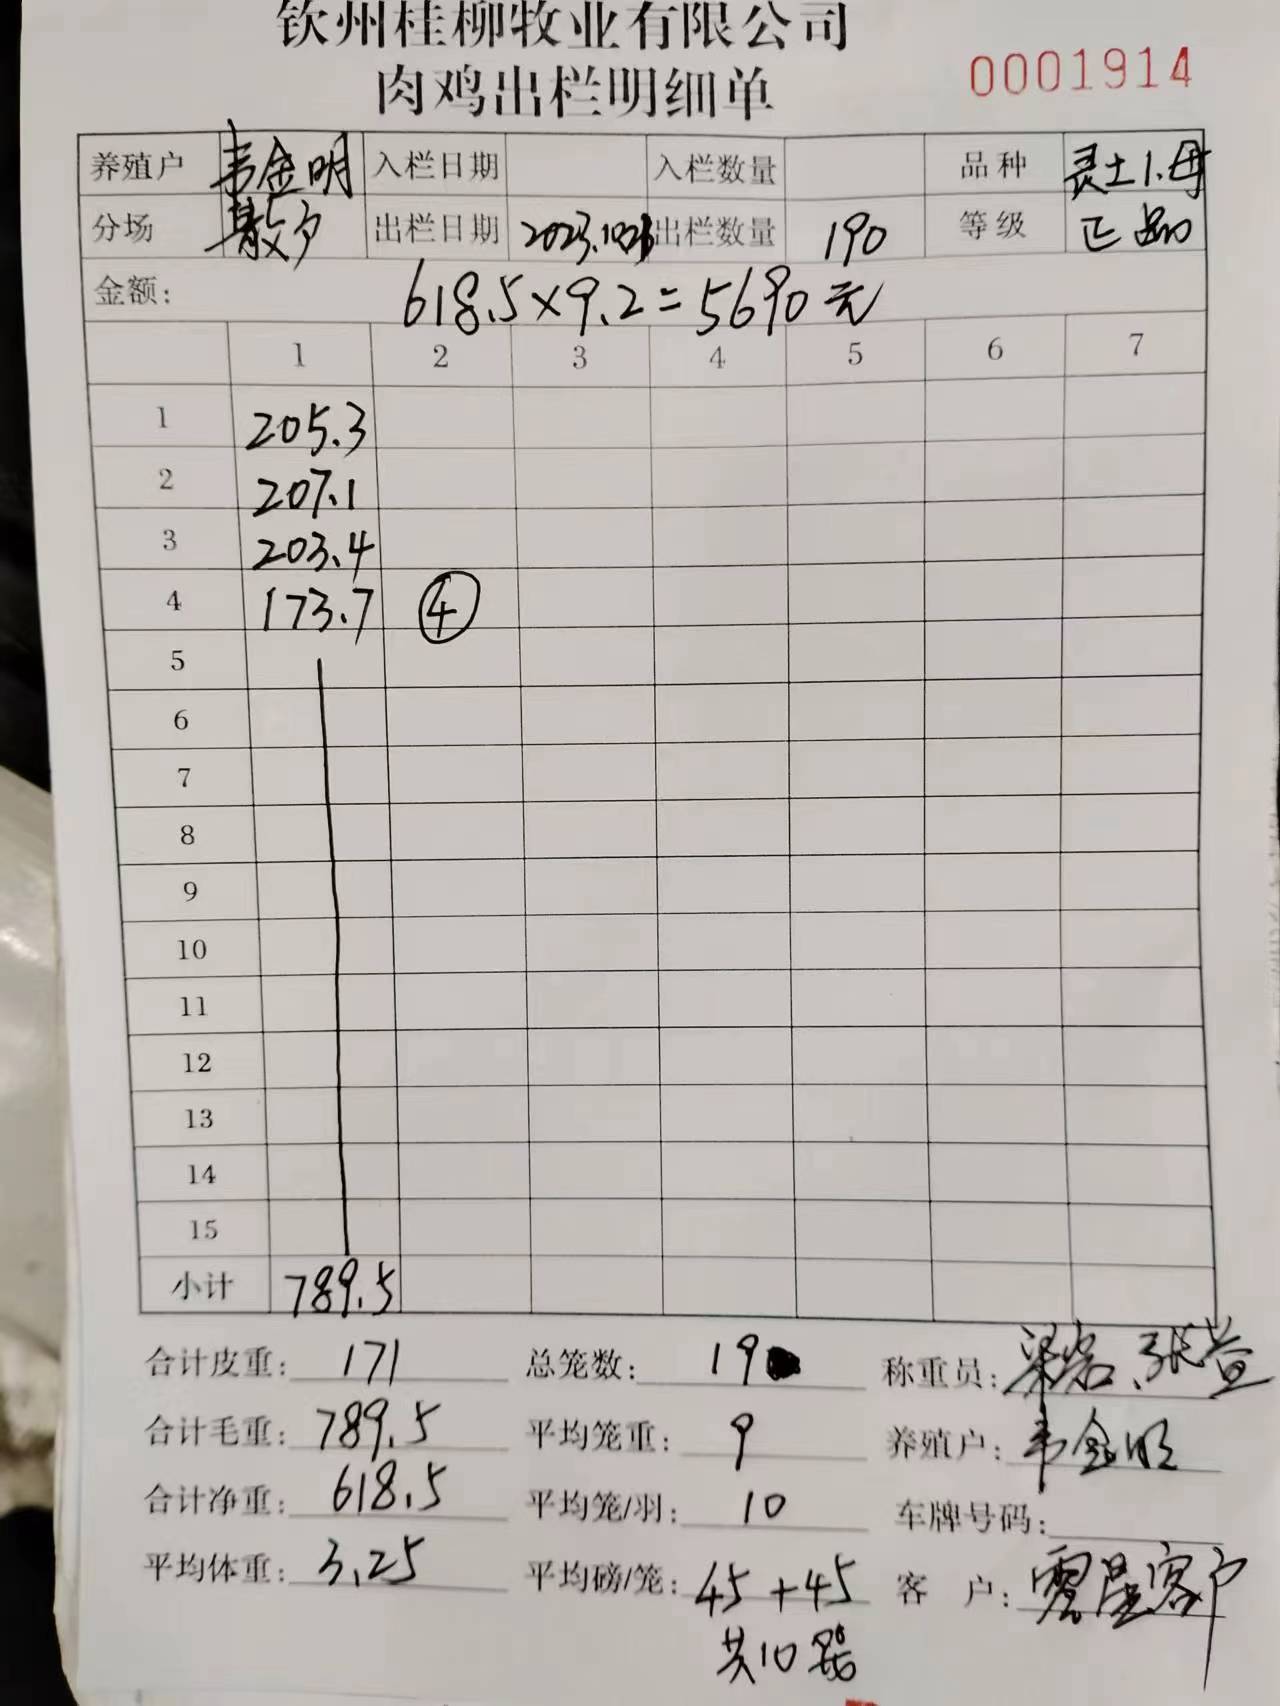 钦州桂柳牧业有限公司
肉鸡出栏明细单
0001914
养殖户 韦金明 入栏日期 入栏数量 品种 灵土1.母
分场 散户 出栏日期 2023.1023 出栏数量 190 等级 正品
金额: 618.5×9.2=5690元
1 2 3 4 5 6 7
1 205.3
2 207.1
3 203.4
4 173.7 ④
5
6
7
8
9
10
11
12
13
14
15
小计 789.5
合计皮重: 171 总笼数: 19 称重员:
合计毛重: 789.5 平均笼重: 9 养殖户: 韦金明
合计净重: 618.5 平均笼/羽: 10 车牌号码:
平均体重: 3.25 平均磅/笼: 45+45 客 户: 零星客户
共10